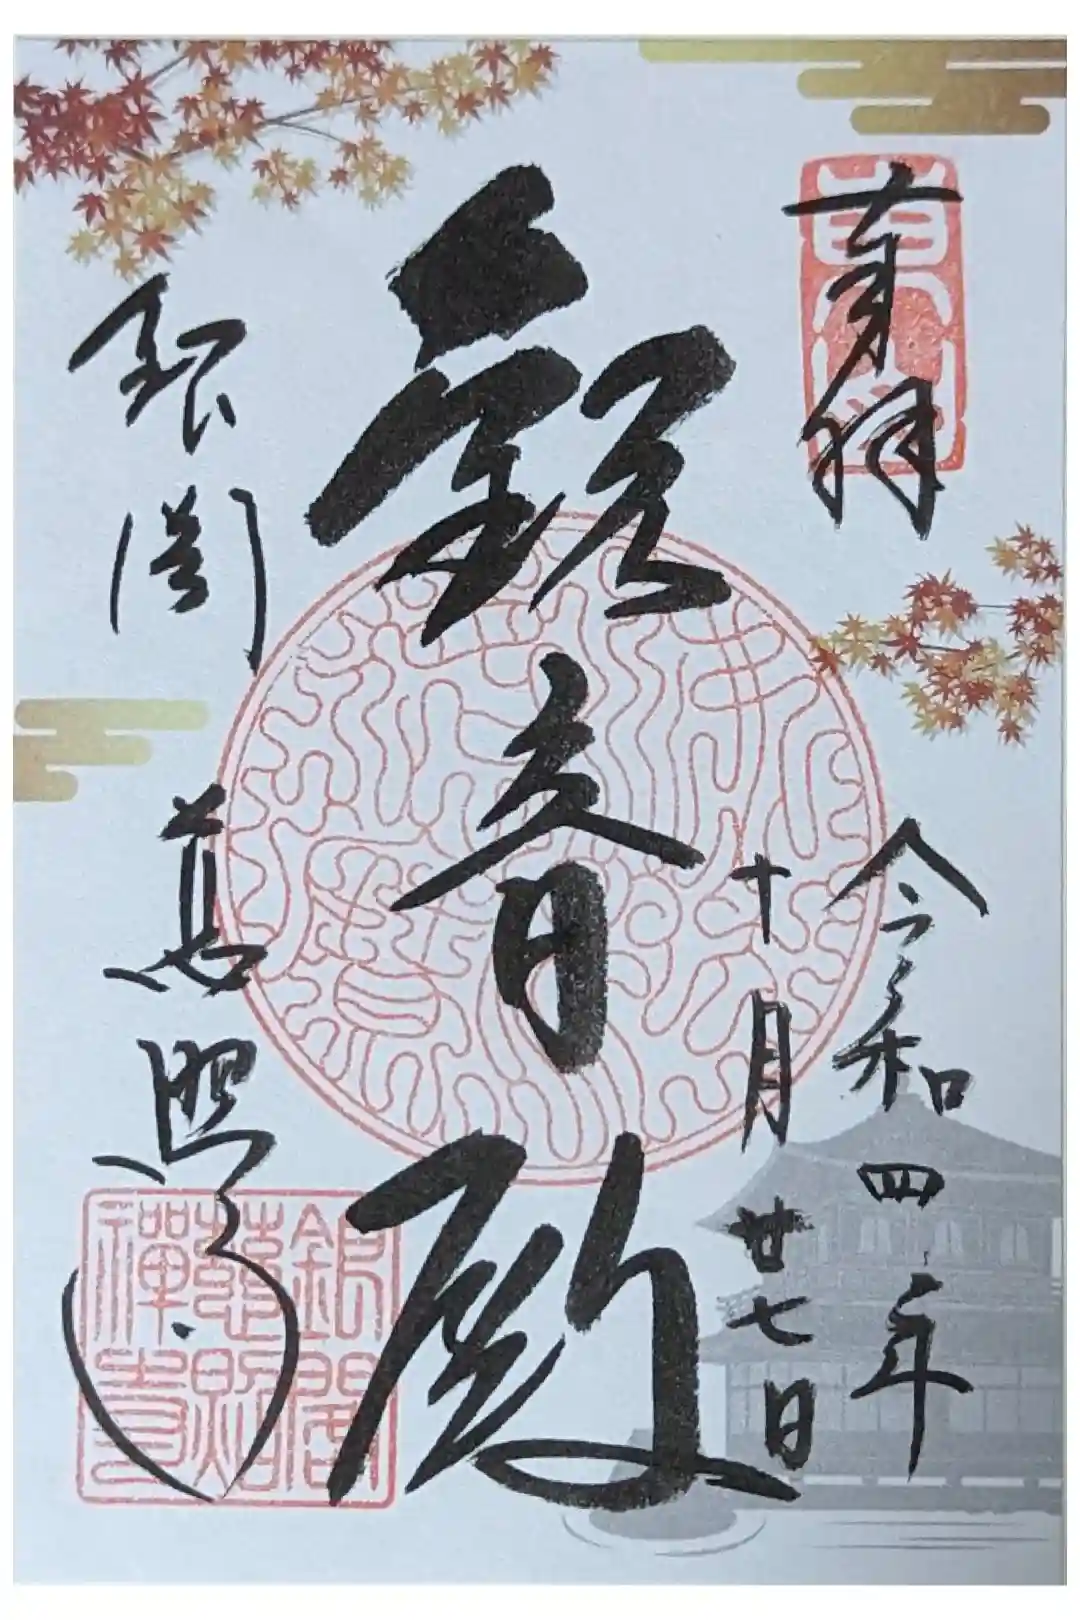 奉拝
令和四年
十月廿七日
観音殿
銀閣
慈照寺
銀閣
慈照
禅寺